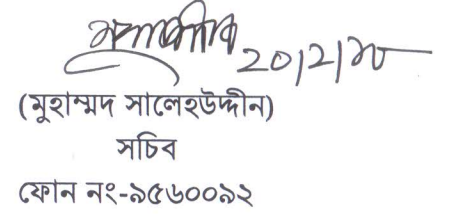 ২০|২|১৮
(মুহাম্মদ সালেহউদ্দীন)
সচিব
ফোন নং-৯৫৬০০৯২